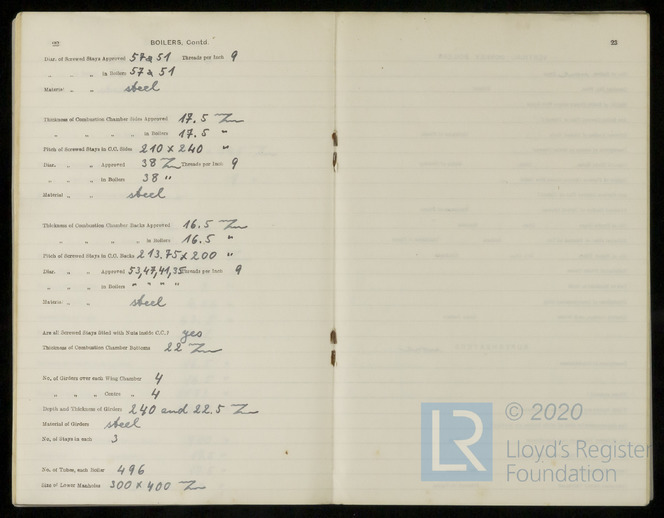 22
BOILERS, Contd.
Diar. of Screwed Stays Approved 57 & 51 Threads per Inch 9
" " " in Boilers 57 & 51
Material " " steel
Thickness of Combustion Chamber Sides Approved 17.5 Zm
" " " " in Boilers 17.5 "
Pitch of Screwed Stays in C.C. Sides 210 x 240 "
Diar. " " Approved 38 Zm Threads per Inch 9
" " " in Boilers 38 "
Material " " steel
Thickness of Combustion Chamber Backs Approved 16.5 Zm
" " " " in Boilers 16.5 "
Pitch of Screwed Stays in C.C. Backs 213.75 x 200 "
Diar. " " Approved 53,47,41,35 Threads per Inch 9
" " " in Boilers " " " "
Material " " steel
Are all Screwed Stays fitted with Nuts inside C.C.? yes
Thickness of Combustion Chamber Bottoms 22 Zm
No. of Girders over each Wing Chamber 4
" " " Centre " 4
Depth and Thickness of Girders 240 and 22.5 Zm
Material of Girders steel
No. of Stays in each 3
No. of Tubes, each Boiler 496
Size of Lower Manholes 300 x 400 Zm
23
LR
© 2020
Lloyd's Register
Foundation